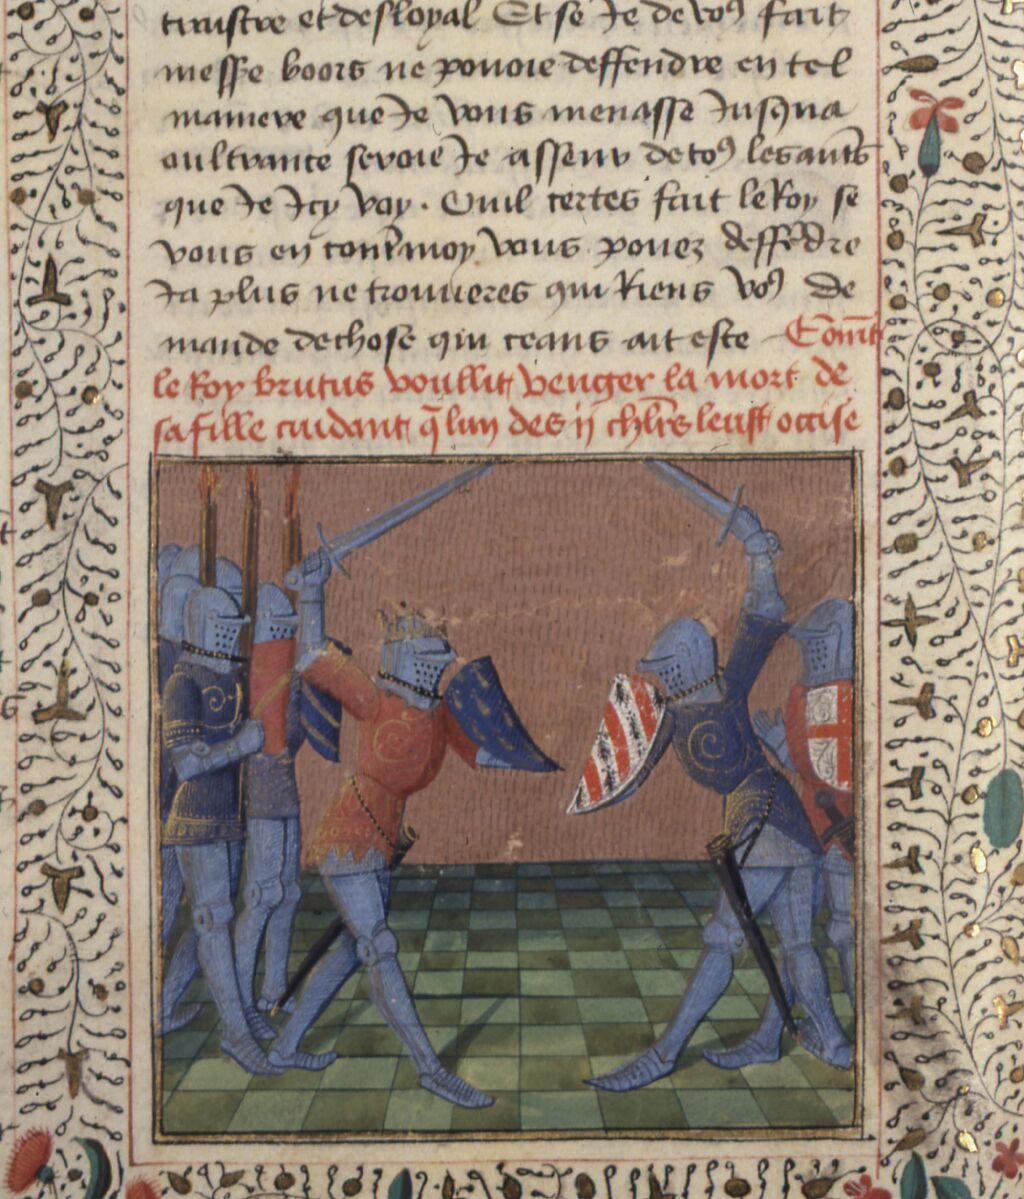 traistre et desloyal Et se Je de vo9 fait
messe boors ne pouoie deffendre en tel
maniere que Je vous menasse Jusqua
oultrance seroie Je asseur de to9 les aut̃s
que Je Icy voy . Ouil certes fait le Roy se
vous en cont̃ moy vous pouez deffẽdre
Ja plus ne trouueres qui Riens vo9 de
mande de chose qui ceans ait este Cõmt̃
le Roy brutus voullit venger la mort de
sa fille cuidant q̃ lun des ij chlr̃s leust occise